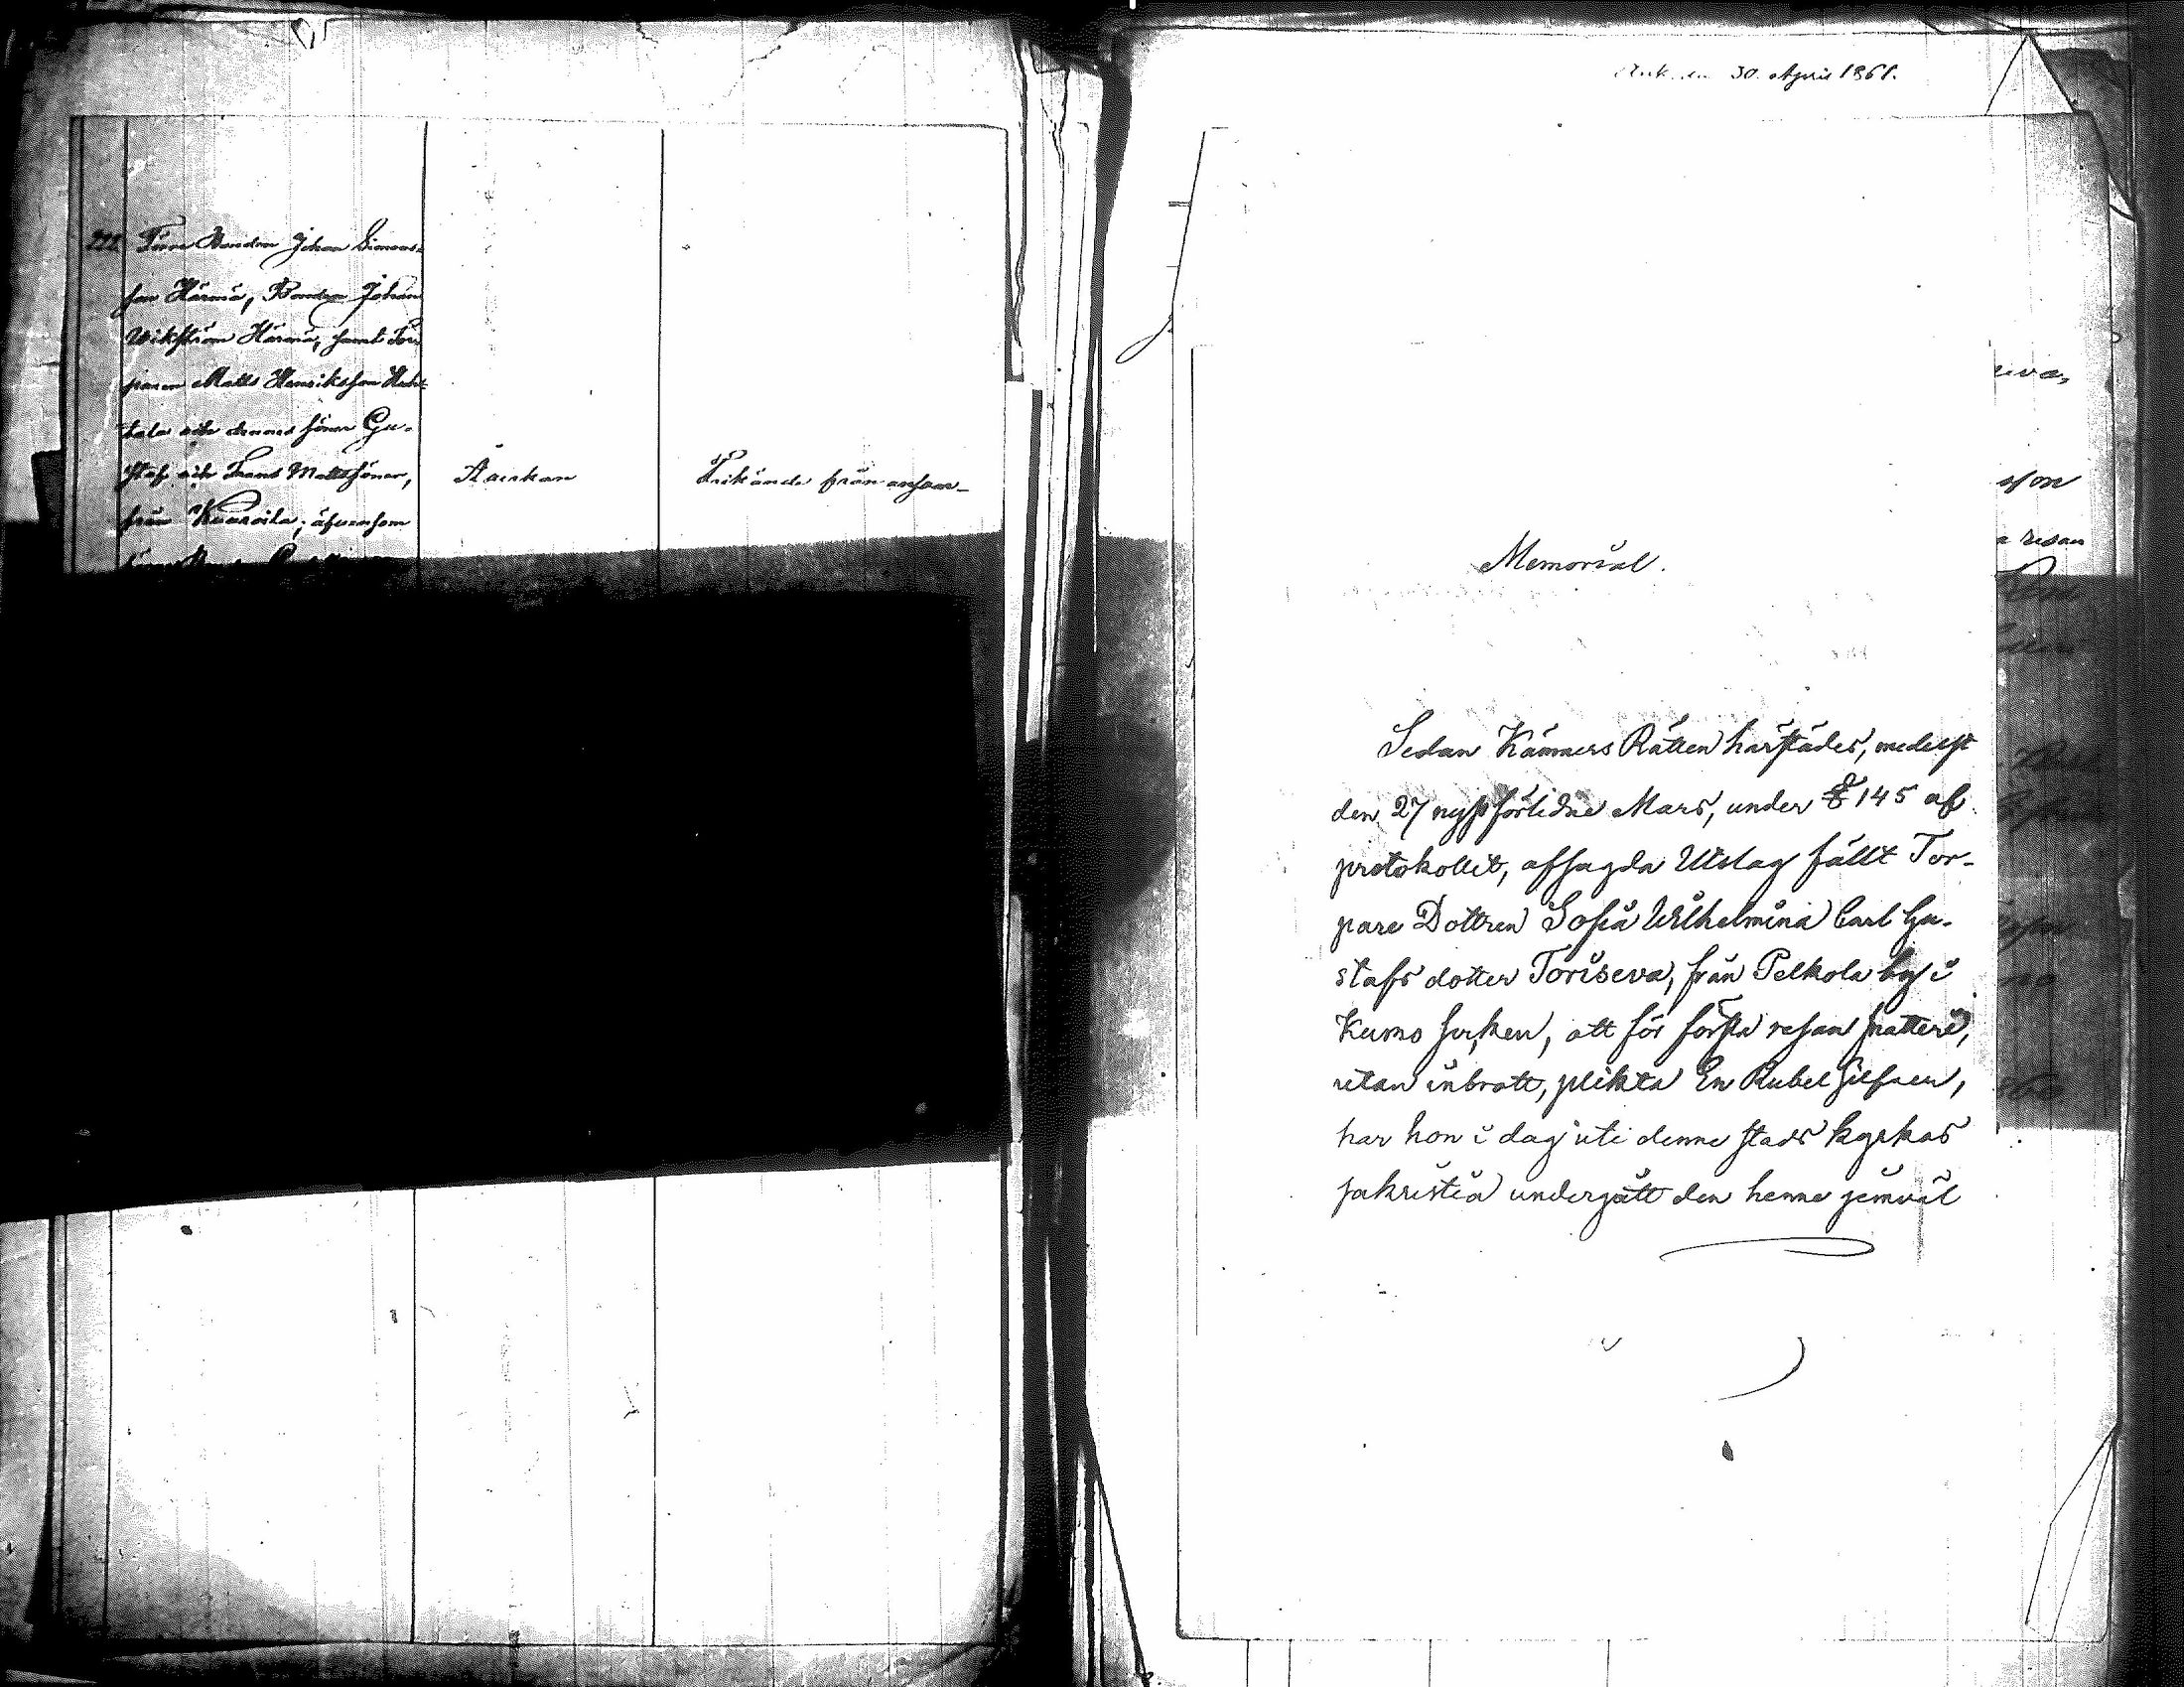 222. Förre Bonden Johan Simons-
son Härmä, Bonden Johan
Wikström Härmä, samt Tor-
paren Matts Henriksson
och dennes söner Gu-
staf och Frans Mattssöner,
från Kuuroila; äfvensom
Åverkan
Frikände från ansvar
30. April 1861.
Memorial.
Sedan Kämners Rätten härstädes, medelst
den 27 nystförlidne Mars, under § 145 af
protokollet, afsagda Utslag fällt Tor-
pare Dottren Sofia Wilhelmina Carl Gu-
stafs dotter Toriseva, från Pelkola by i
Kumo socken, att för första resan snatteri,
utan inbrott, plikta En Rubel silfver,
har hon i dag uti denne stads kyrkas
sakristia undergått den henne jemväl
eva,
sson
a resan